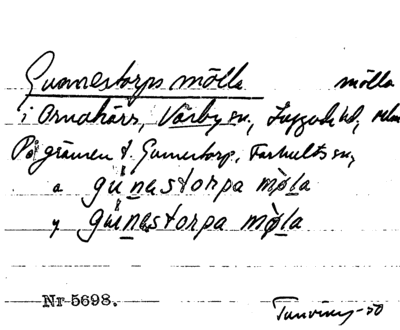 Gunnestorps mölla mölla
i Ornakärr, Välby sn, Luggude hd,
På gränsen t. Gunnestorp, Farhults sn,
a günastorpa møla
y güinastorpa møla
Nr 5698.